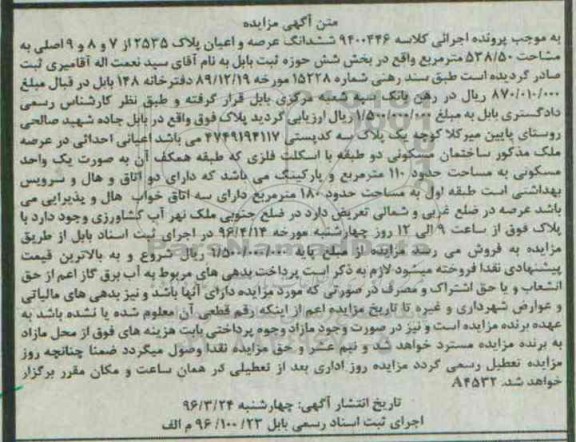 متن آگهی مزایده
به موجب پرونده اجرائی کلاسه ۹۴۰۰۴۴۶ ششدانگ عرصه و اعیان پلاک ۲۵۳۵ از ۷ و ۸ و ۹ اصلی به
مساحت ۵۳۸/۵۰ مترمربع واقع در بخش شش حوزه ثبت بابل به نام آقای سید نعمت اله آقامیری ثبت
صادر گردیده است طبق سند رهنی شماره ۱۵۲۲۸ مورخه ۸۹/۱۲/۱۹ دفترخانه ۱۴۸ بابل در قبال مبلغ
۸۷۰/۰۱۰/۰۰۰ ریال در رهن بانک سپه شعبه مرکزی بابل قرار گرفته و طبق نظر کارشناس رسمی
دادگستری بابل به مبلغ ۱/۵۰۰/۰۰۰/۰۰۰ ریال ارزیابی گردید پلاک فوق واقع در بابل جاده شهید صالحی
روستای پایین میرکلا کوچه یک پلاک سه کدپستی ۴۷۴۹۱۹۴۱۱۷ می باشد اعیانی احداثی در عرصه
ملک مذکور ساختمان مسکونی دو طبقه با اسکلت فلزی که طبقه همکف آن به صورت یک واحد
مسکونی به مساحت حدود ۱۱۰ مترمربع و پارکینگ می باشد که دارای دو اتاق و هال و سرویس
بهداشتی است طبقه اول به مساحت حدود ۱۸۰ مترمربع دارای سه اتاق خواب هال و پذیرایی می
باشد عرصه در ضلع غربی و شمالی تعریض دارد در ضلع جنوبی ملک نهر آب کشاورزی وجود دارد پا
پلاک فوق از ساعت ۹ الی ۱۲ روز چهارشنبه مورخه ۹۶/۴/۱۴ در اجرای ثبت اسناد بابل از طریق
مزایده به فروش می رسد مزایده از مبلغ پایه ۱/۵۰۰/۰۰۰/۰۰۰ ریال شروع و به بالاترین قیمت
پیشنهادی نقدا فروخته میشود لازم به ذکر است پرداخت بدهی های مربوط به آب برق گاز اعم از حق
انشعاب و یا حق اشتراک و مصرف در صورتی که مورد مزایده دارای آنها باشد و نیز بدهی های مالیاتی
و عوارض شهرداری و غیره تا تاریخ مزایده اعم از اینکه رقم قطعی آن معلوم شده یا نشده باشد به
عهده برنده مزایده است و نیز در صورت وجود مازاد وجوه پرداختی بابت هزینه های فوق از محل مازاد
به برنده مزایده مسترد خواهد شد و نیم عشر و حق مزایده نقدا وصول میگردد ضمنا چنانچه روز
مزایده تعطیل رسمی گردد مزایده روز اداری بعد از تعطیلی در همان ساعت و مکان مقرر برگزار
خواهد شد. ۸۴۵۳۲
تاریخ انتشار آگهی: چهارشنبه ۹۶/۳/۲۴
اجرای ثبت اسناد رسمی بابل ۲۳/ ۱۰۰/ ۹۶ م الف